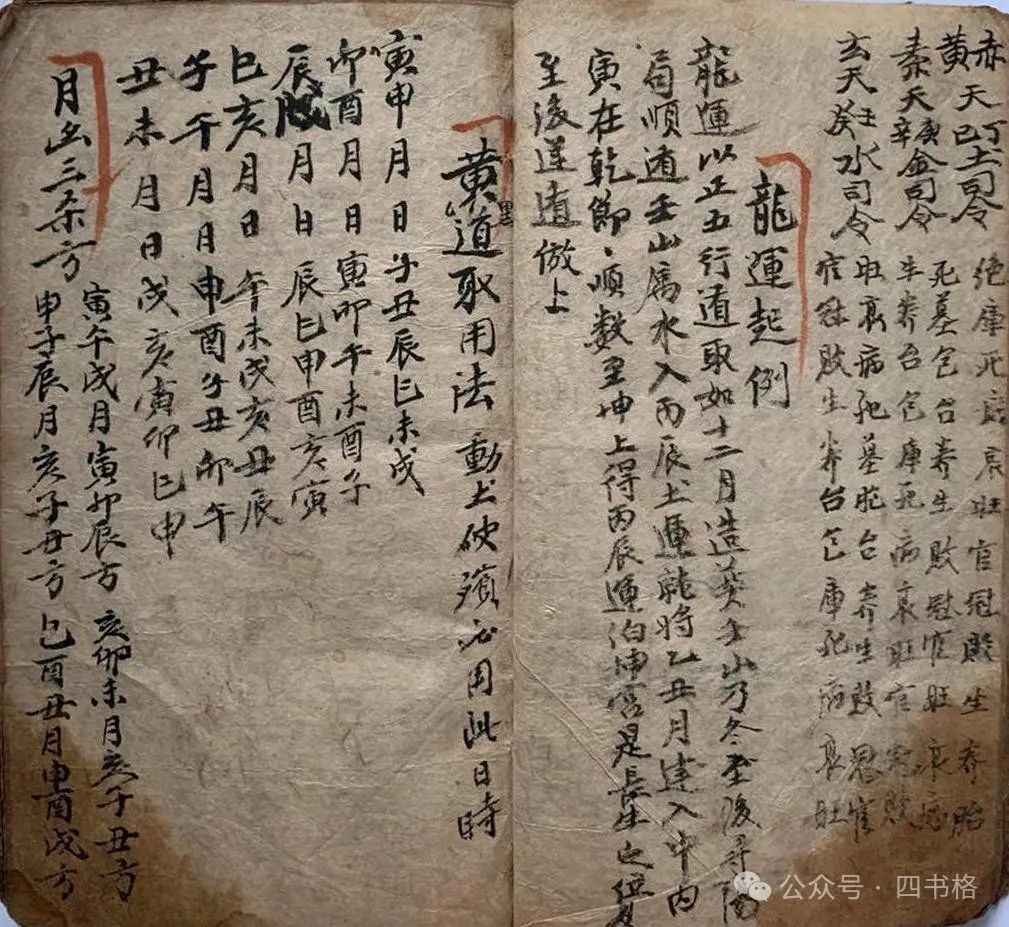 赤天丁土司令 绝庫死病衰旺官冠敗生养胎
黄天巳土司令 死墓包台养生敗冠官旺衰病
素天庚辛金司令 生养台包庫死病衰旺官冠敗
玄天壬癸水司令 旺衰病死墓胞台养生敗冠官
官冠敗生养台包庫死病衰旺
龍運起例
龍運以正五行道取如十二月造葵壬山乃冬至後寻陽
局順遁壬山属水入丙辰土運就将乙丑月建入中内
寅在乾節、順数至坤上得丙辰運泊坤宫是長生之位
至後逆遁倣上
黄道取用法 動土破殯必用此日時
黑
寅申月日子丑辰巳未戌
卯酉月日寅卯午未酉子
辰戌月日辰巳申酉亥寅
巳亥月日午未戌亥丑辰
子午月月申酉子丑卯午
丑未月日戌亥寅卯巳申
月出三杀方 寅午戌月寅卯辰方 亥卯未月亥子丑方
申子辰月亥子丑方 巳酉丑月申酉戌方
公众号·四书格